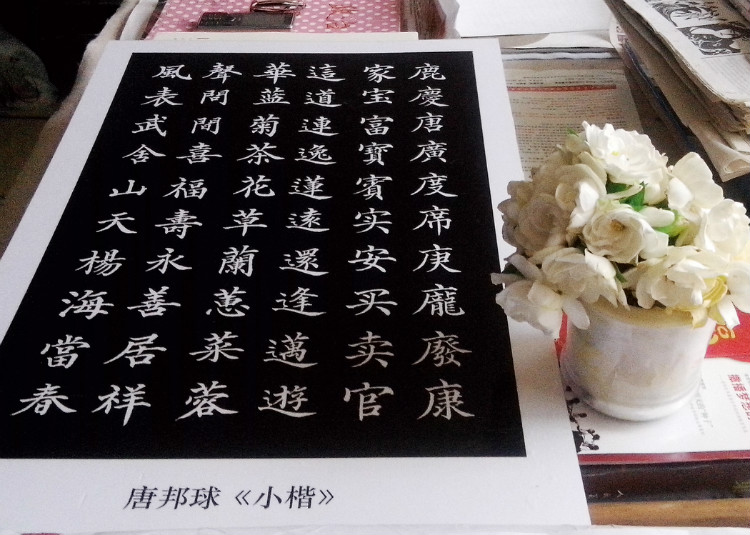 鹿慶唐廣度席庚龐廢康
家宝富寶賓实安买卖官
這道連逸達遠還逢邁遊
華蓝菊茶花草蘭蕙菜蓉
聲問間喜福壽永善居祥
風表武舍山天楊海當春
唐邦球《小楷》